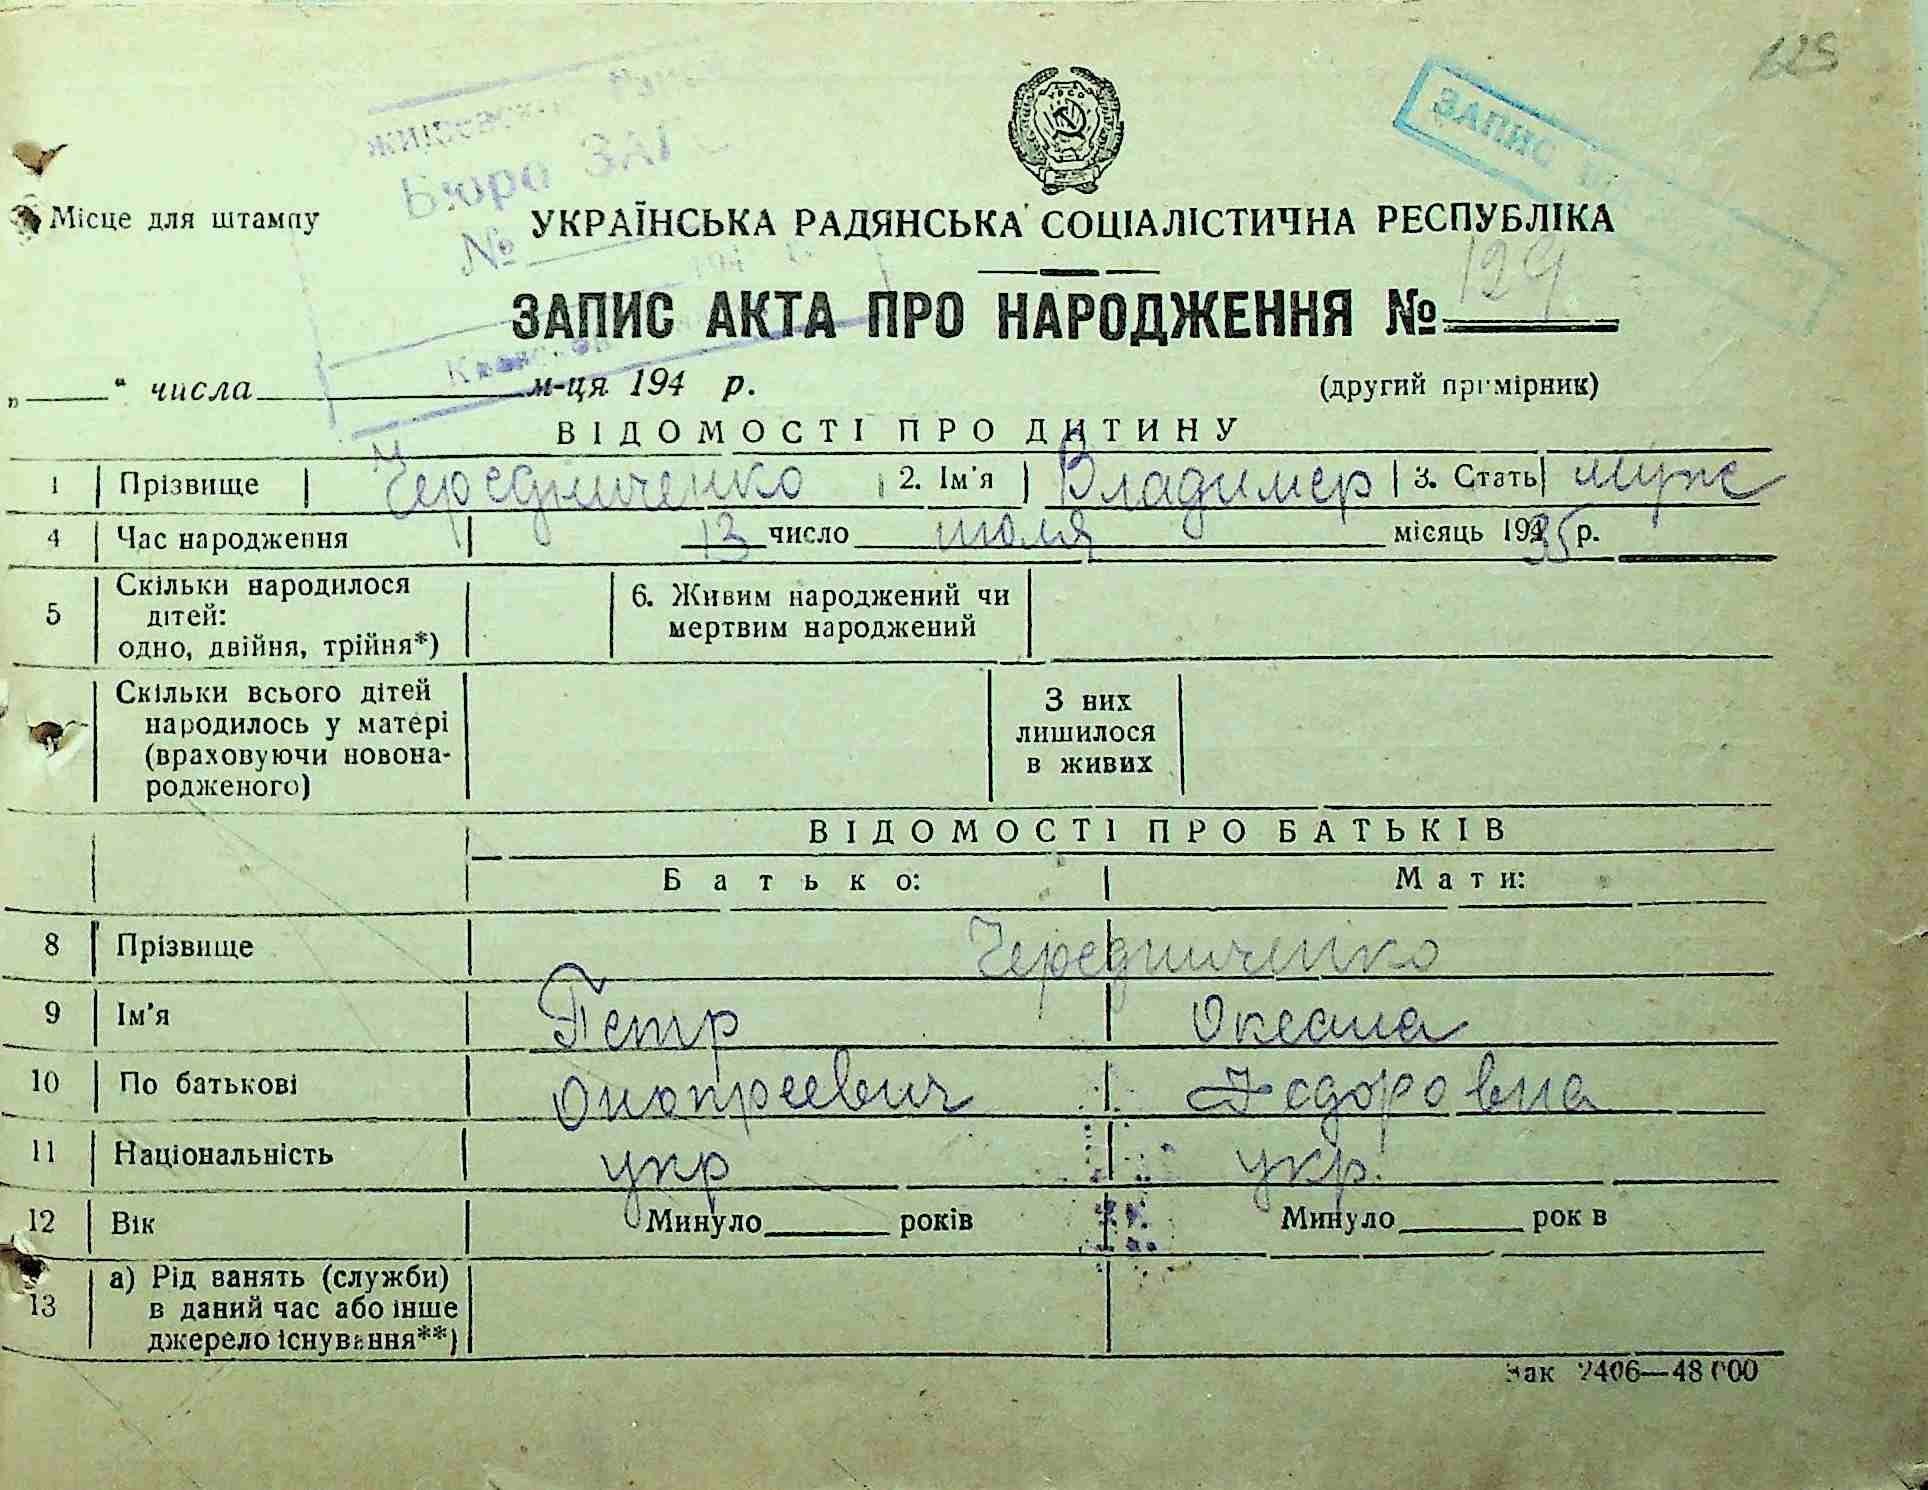 125
Бюро ЗАГС
№
ЗАПИС
УРСР
Місце для штампу
УКРАЇНСЬКА РАДЯНСЬКА СОЦІАЛІСТИЧНА РЕСПУБЛІКА
ЗАПИС АКТА ПРО НАРОДЖЕННЯ № 129
„ “ числа м-ця 194 р. (другий примірник)
ВІДОМОСТІ ПРО ДИТИНУ
1 Прізвище Чередниченко 2. Ім'я Владимер 3. Стать муж
4 Час народження 13 число июля місяць 1935 р.
5 Скільки народилося дітей: одно, двійня, трійня*) 6. Живим народжений чи мертвим народжений
Скільки всього дітей народилось у матері (враховуючи новонародженого) З них лишилося в живих
ВІДОМОСТІ ПРО БАТЬКІВ
Батько: Мати:
8 Прізвище Чередниченко
9 Ім'я Петр Оксана
10 По батькові Онопреевич Федоровна
11 Національність укр укр.
12 Вік Минуло років Минуло рок в
13 а) Рід занять (служби) в даний час або інше джерело існування**)
Зак 2406—48 000